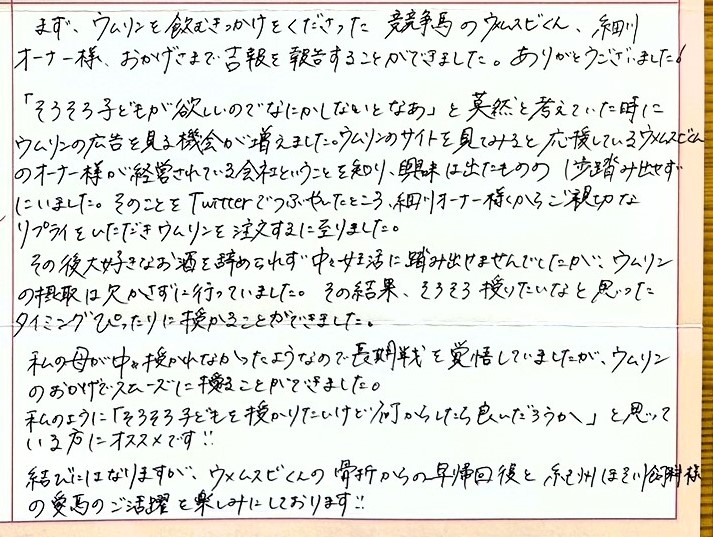 まず、ウムリンを飲むきっかけをくださった 競争馬のウメムスビくん、細川
オーナー様、おかげさまで吉報を報告することができました。ありがとうございました!
「そろそろ子どもが欲しいのでなにかしないとなあ」と莫然と考えていた時に
ウムリンの広告を見る機会が増えました。ウムリンのサイトを見てみると応援しているウメムスビくん
のオーナー様が経営されている会社ということを知り、興味は出たものの 1歩踏み出せず
にいました。そのことをTwitterでつぶやいたところ、細川オーナー様からご親切な
リプライをいただきウムリンを注文するに至りました。
その後大好きなお酒を辞められず中々妊活に踏み出せませんでしたが、ウムリン
の摂取は欠かさずに行っていました。その結果、そろそろ授りたいなと思った
タイミングぴったりに授かることができました。
私の母が中々授かれなかったようなので長期戦を覚悟していましたが、ウムリン
のおかげでスムーズに授ることができました。
私のように「そろそろ子どもを授かりたいけど何からしたら良いだろうか」と思って
いる方にオススメです!!
結びにはなりますが、ウメムスビくんの骨折からの早帰回復と 紀州ほそ川飼料様
の愛馬のご活躍を楽しみにしております!!